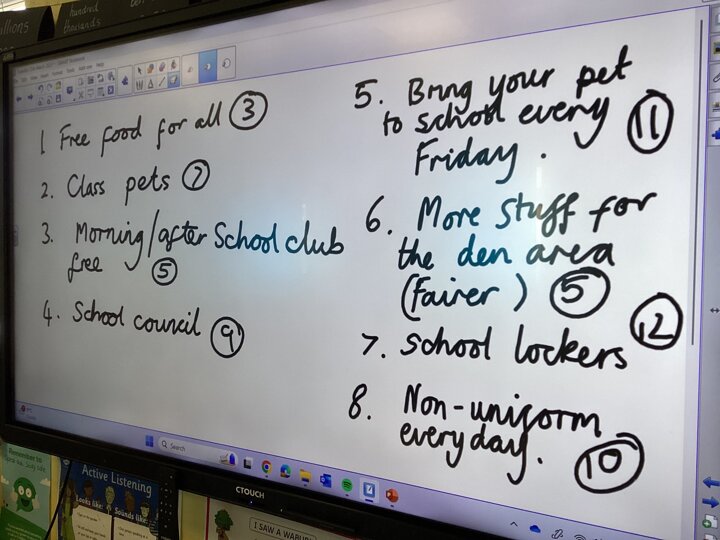 illions
hundred
thousands
1 Free food for all ③
2. Class pets ⑦
3. Morning/after School club
free ⑤
4. School council ⑨
5. Bring your pet
to school every
Friday. ⑪
6. More stuff for
the den area
(fairer) ⑤
7. School lockers ⑫
8. Non-uniform
everyday. ⑩
Search
CTOUCH
Remember to
Active Listening
Looks like:
Sounds like:
I SAW A